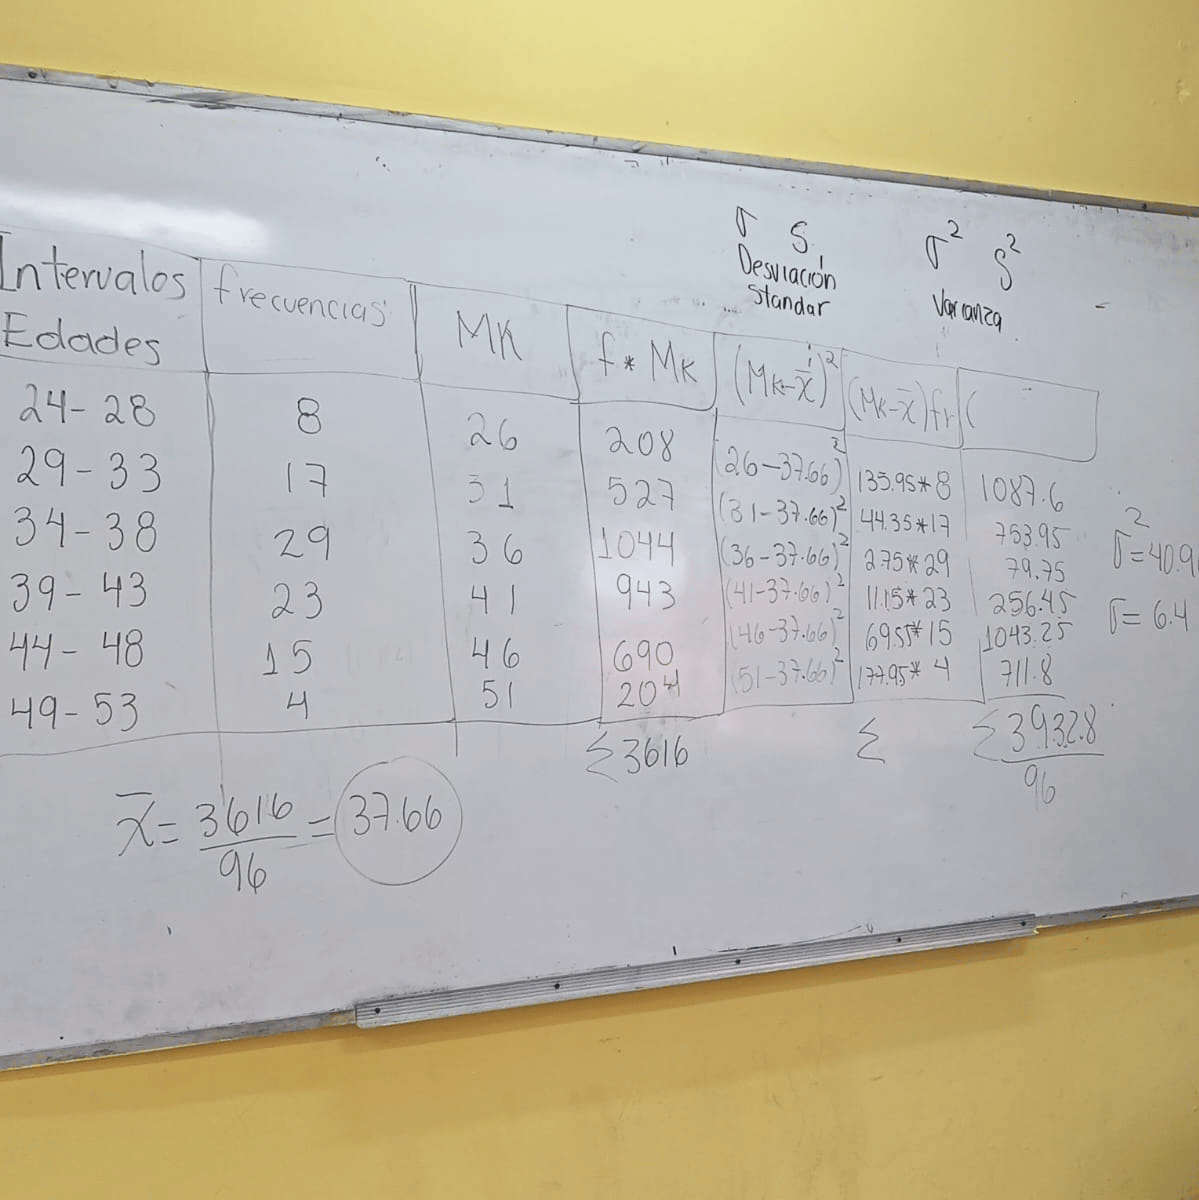 σ S σ² S²
Desviación Standar Varianza
Intervalos Edades frecuencias MK f * MK (MK-x̄)² (MK-x̄)fr (
24-28 8 26 208 (26-37.66)² 135.95*8 1087.6
29-33 17 31 527 (31-37.66)² 44.35*17 753.95
34-38 29 36 1044 (36-37.66)² 2.75*29 79.75
39-43 23 41 943 (41-37.66)² 11.15*23 256.45
44-48 15 46 690 (46-37.66)² 69.55*15 1043.25
49-53 4 51 204 (51-37.66)² 177.95*4 711.8
Σ3616 Σ Σ3932.8
96
σ²=40.9
σ=6.4
x̄=3616/96=37.66